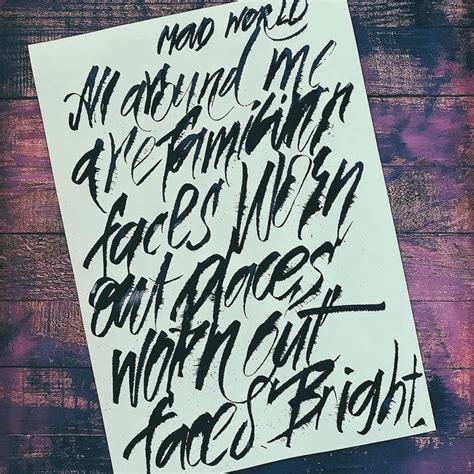 MAD WORLD
All around me
are familiar
faces Worn
out places
worn out
faces Bright.